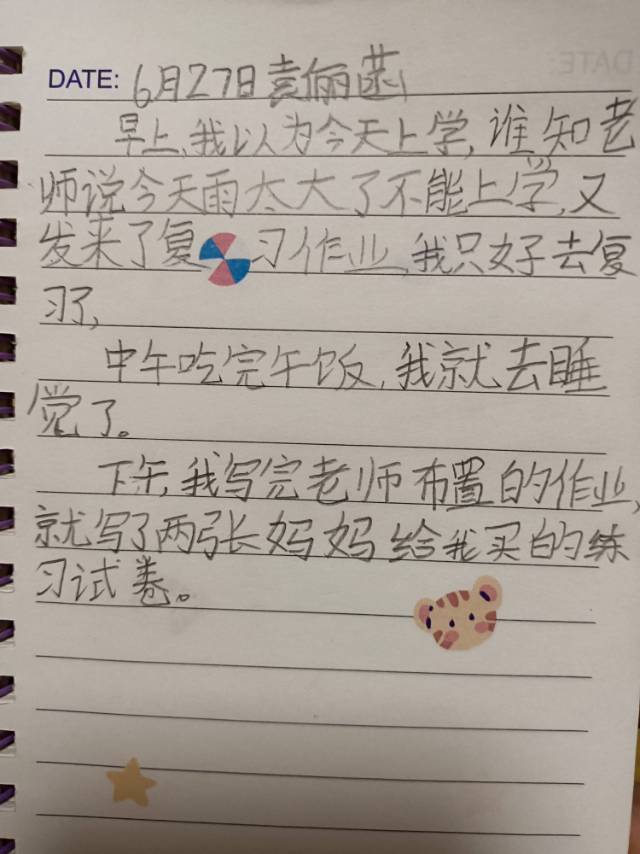 DATE: 6月27日袁俪菡
早上,我以为今天上学,谁知老
师说今天雨太大了不能上学,又
发来了复习作业,我只好去复
习了,
中午吃完午饭,我就去睡
觉了。
下午,我写完老师布置的作业,
就写了两张妈妈给我买的练
习试卷。